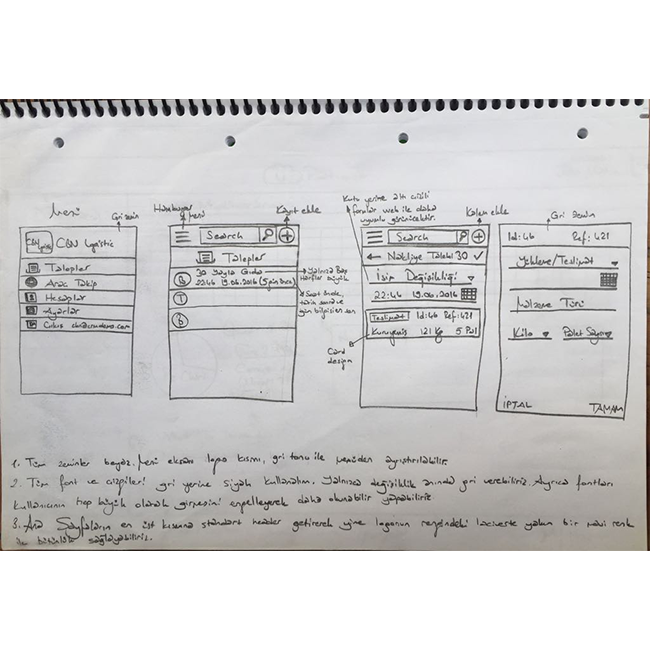 Menü
Gri zemin
CBN Logistic
Talepler
Araç Takip
Hesaplar
Ayarlar
Çıkış
Hamburger
Menü
Kayıt ekle
Search
Talepler
30 Yayla Gıda
22:46 19.06.2016 (5 gün önce)
T
Yalnızca Baş
Harfler büyük
Saat önde,
tarih sonra ve
gün bilgisi en son
Kutu yerine altı çizili
formlar web ile daha
uyumlu görünecektir.
Kalem ekle
Search
Nakliye Talebi 30
İsim Değişikliği
22:46 19.06.2016
Teslimat Id:46 Ref:421
Kuruyemiş 121 Kg 5 Pal
Card
design
Gri Zemin
Id:46 Ref:421
Yükleme/Teslimat
Malzeme Türü
Kilo Palet Sayısı
İPTAL TAMAM
1. Tüm zeminler beyaz. Menü ekranı logo kısmı, gri tonu ile menüden ayrıştırılabilir.
2. Tüm font ve çizgileri gri yerine siyah kullanalım. Yalnızca değişiklik anında gri verebiliriz. Ayrıca fontları
kullanıcının hep büyük olarak girmesini engelleyerek daha okunabilir yapabiliriz
3. Ana Sayfaların en üst kısmına standart header getirerek yine logonun rengindeki laciverte yakın bir mavi renk
ile bütünlük sağlayabiliriz.